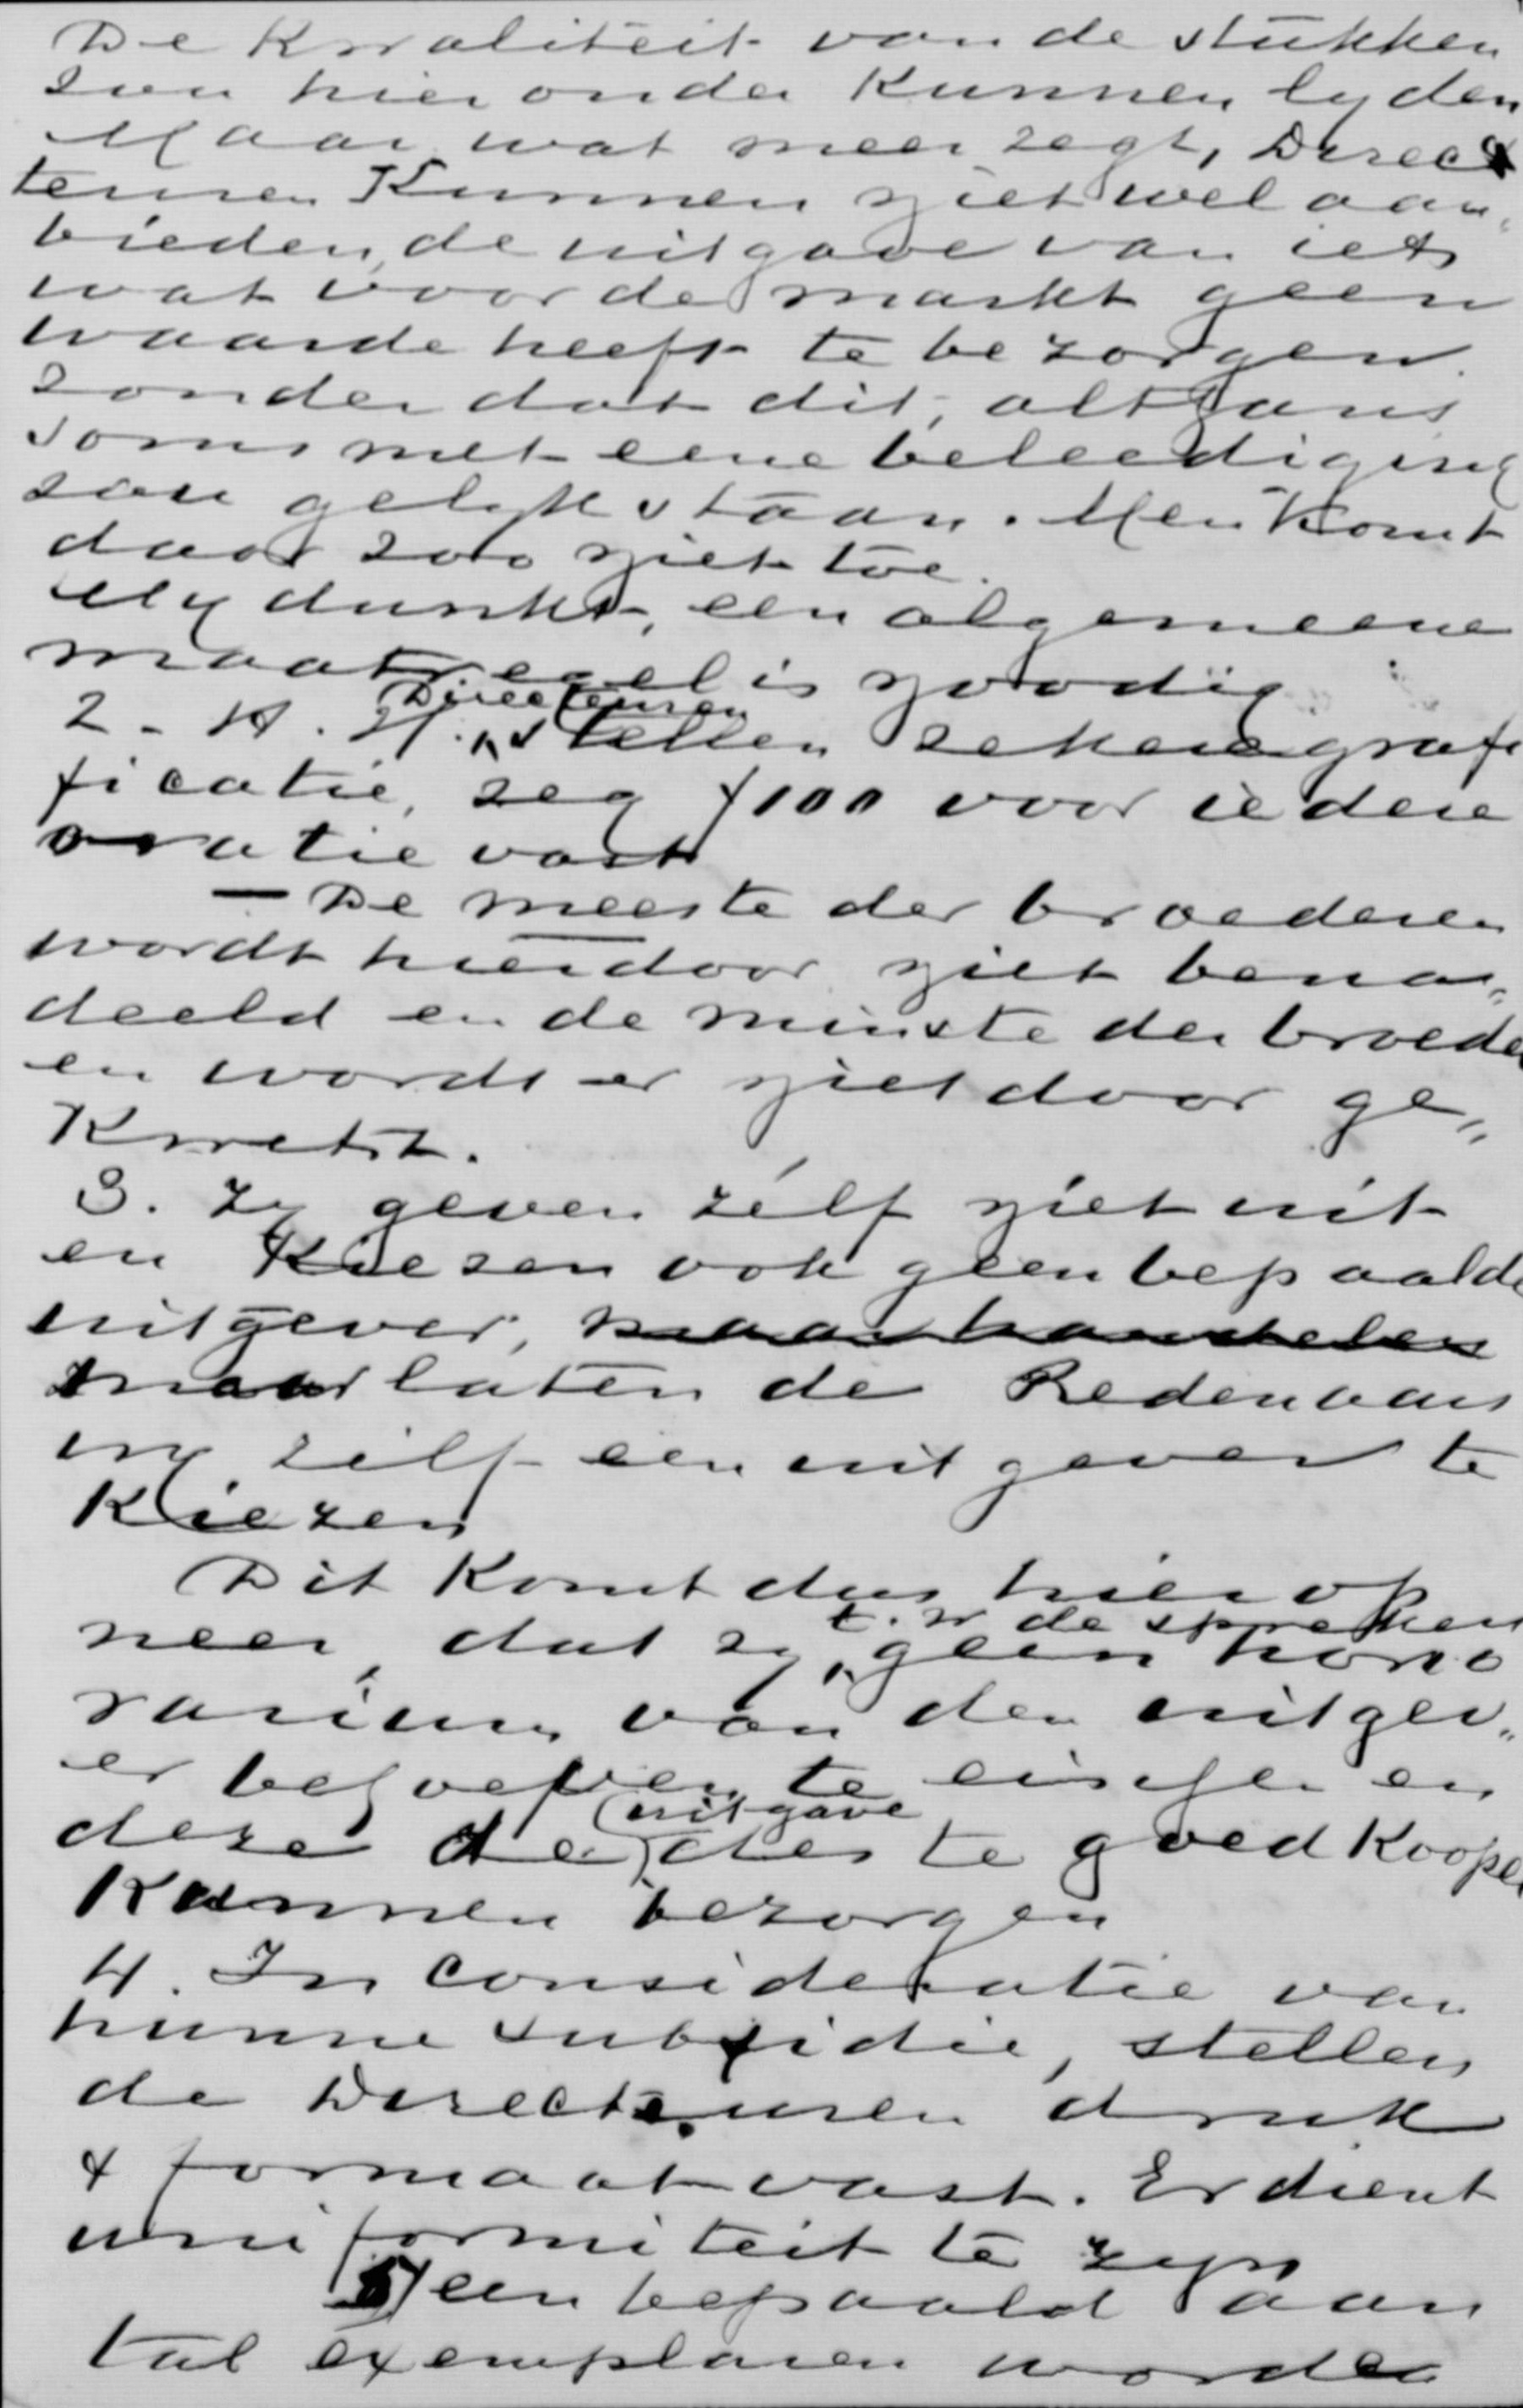 De Kwaliteit van de stukken
zou hieronder Kunnen lyden
Maar wat meer zegt, Direc
teuren Kunnen niet wel aan„
bieden, de uitgave van iets
wat voor de markt geen
waarde heeft te bezorgen.
zonder dat dit, althans
soms met eene beleediging
zou gelyk staan. Men Komt
daar zoo niet toe.
My dunkt, een algemeene
maatregel is noodig
2 - H. H. Directeuren stellen zekere grati
ficatie, zeg f 100 voor iedere
oratie vast
— De meeste der broederen
wordt hierdoor niet bena„
deeld en de minste der broeder
en wordt er niet door ge„
Kwetst.
3. Zy geven zélf niet uit
en Kiezen ook geen bepaalde
uitgever, maar handelen
maar laten de Redenaars
om zelf een uitgever te
Kiezen
Dit Komt dus hierop
neer, dat zy, t. w de sprekers geen hono
rarium van den uitgev„
er behoeven te eischen en
deze de uitgave des te goedkooper
Kunnen bezorgen
4. In consideratie van
hunne subsidie, stellen
de Directeuren druk
& formaat vast. Er dient
uniformiteit te zyn
5) een bepaald aan
tal exemplaren worden